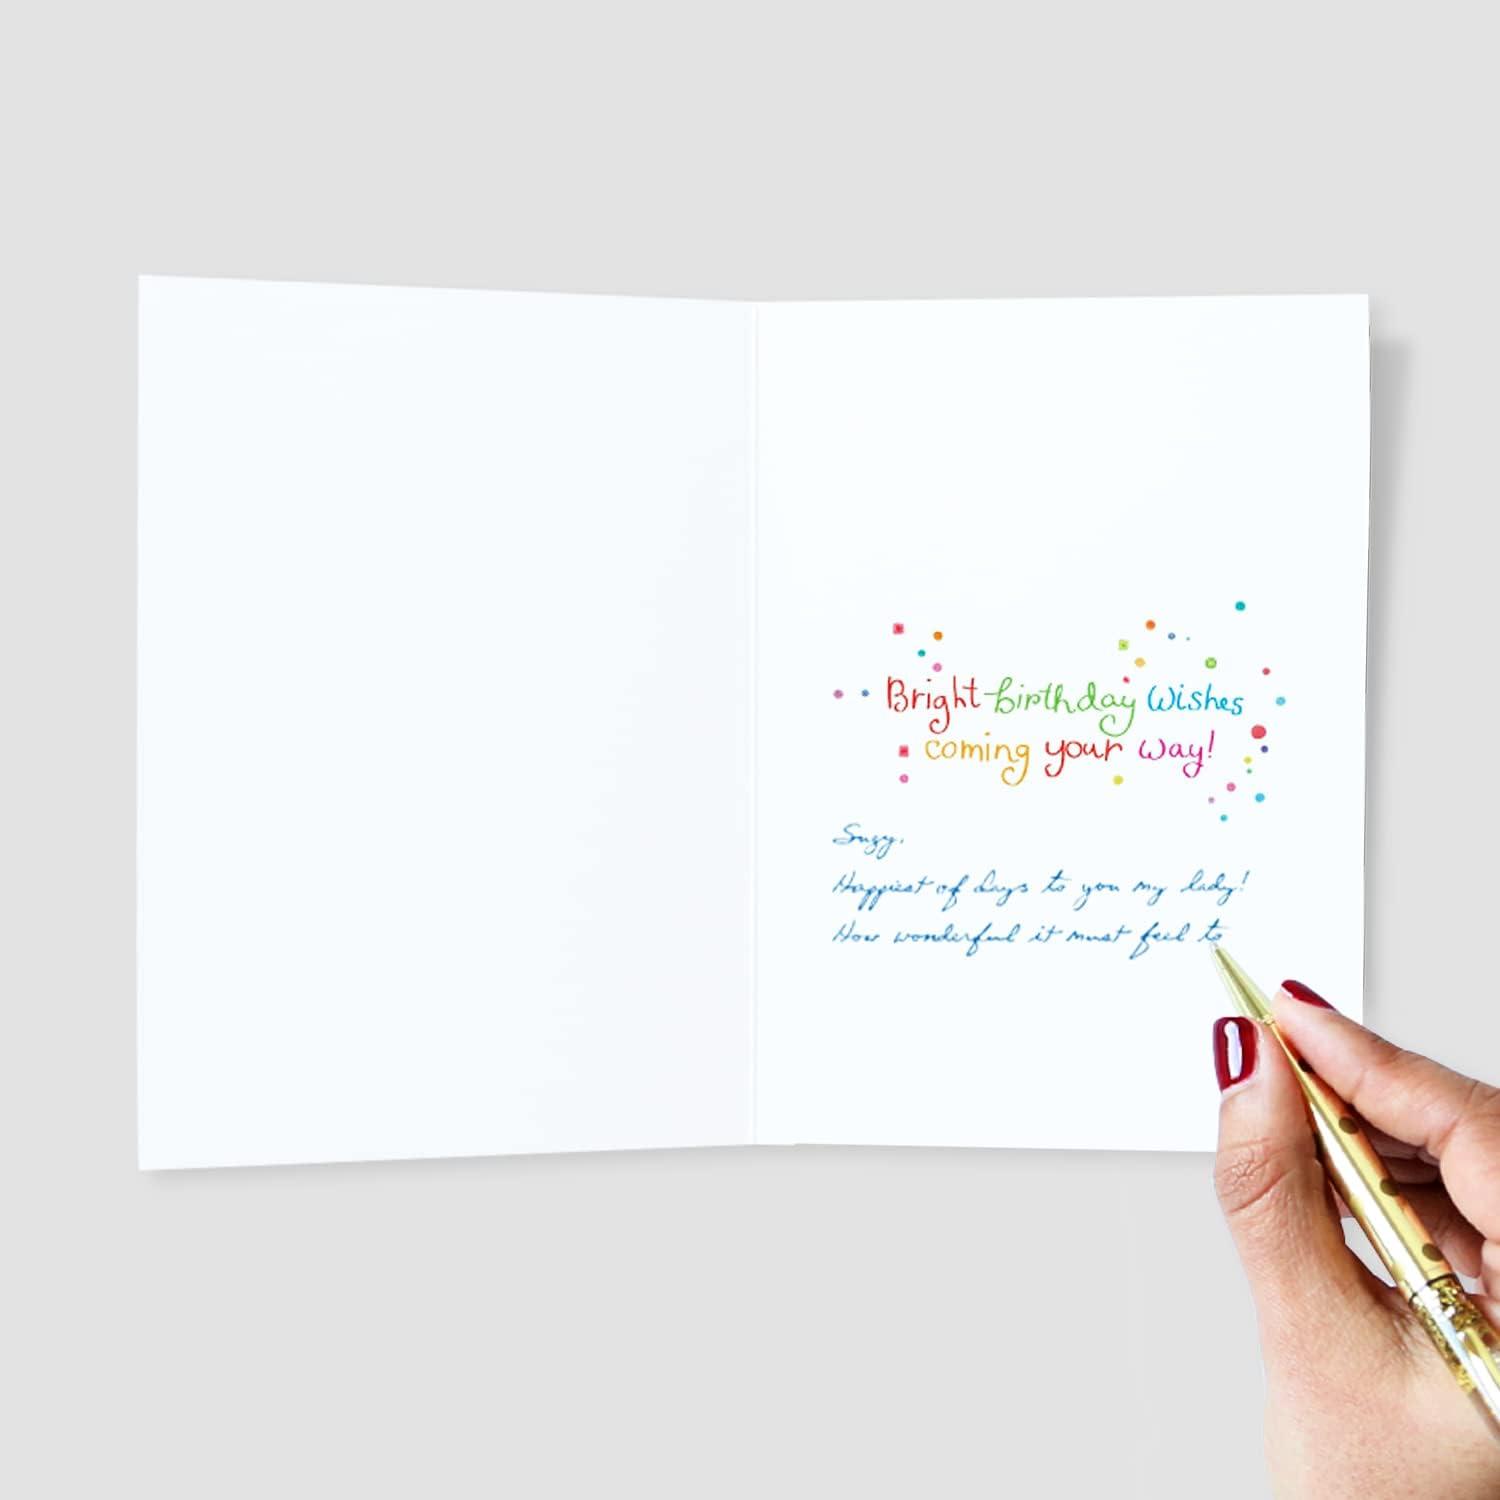 Bright birthday wishes
coming your way!
Suzy,
Happiest of days to you my lady!
How wonderful it must feel to